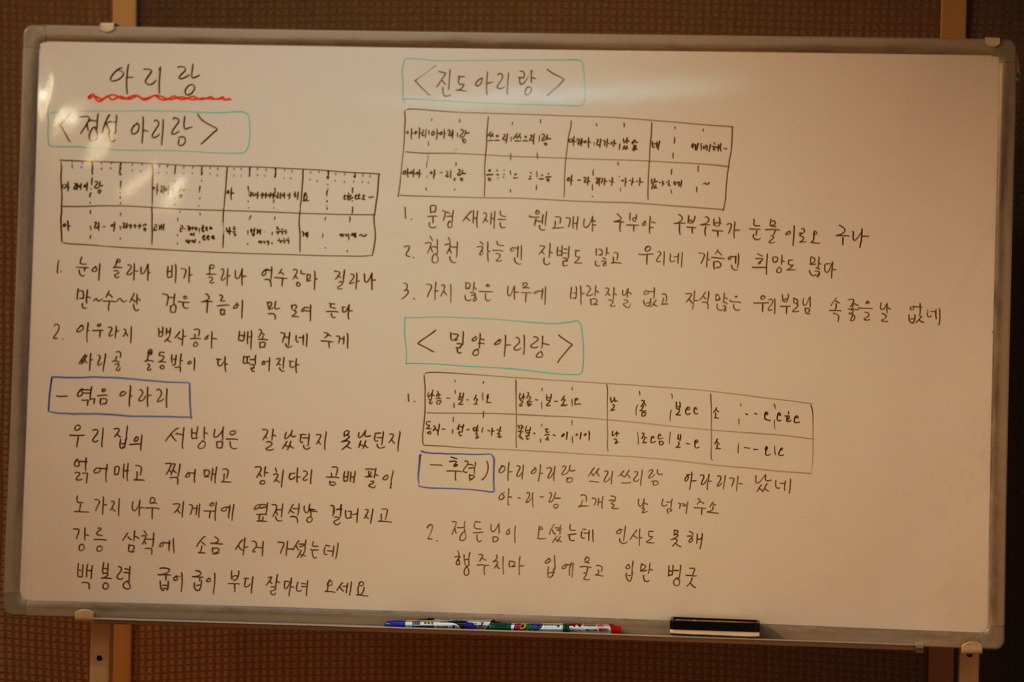 아리랑
<정선 아리랑>
1. 눈이 올라나 비가 올라나 억수장마 질라나
만~수~산 검은 구름이 막 모여 든다
2. 아우라지 뱃사공아 배좀 건네 주게
싸리골 올동박이 다 떨어진다
- 엮음 아라리
우리집의 서방님은 잘났던지 못났던지
얽어매고 찍어매고 장치다리 곰배 팔이
노가지 나무 지게위에 엽전석냥 걸머지고
강릉 삼척에 소금 사러 가셨는데
백봉령 굽이굽이 부디 잘다녀 오세요
<진도아리랑>
아아리아아리랑 쓰으리쓰으리랑
1. 문경 새재는 웬고개냐 구부야 구부구부가 눈물이로오 구나
2. 청천 하늘엔 잔별도 많고 우리네 가슴엔 희망도 많다
3. 가지 많은 나무에 바람잘날 없고 자식많은 우리부모님 속좋을날 없네
<밀양 아리랑>
1. 날좀-보-소 날좀-보-소
-후렴) 아리아리랑 쓰리쓰리랑 아라리가 났네
아-리-랑 고개로 날 넘겨주소
2. 정든님이 오셨는데 인사도 못해
행주치마 입에물고 입만 벙긋